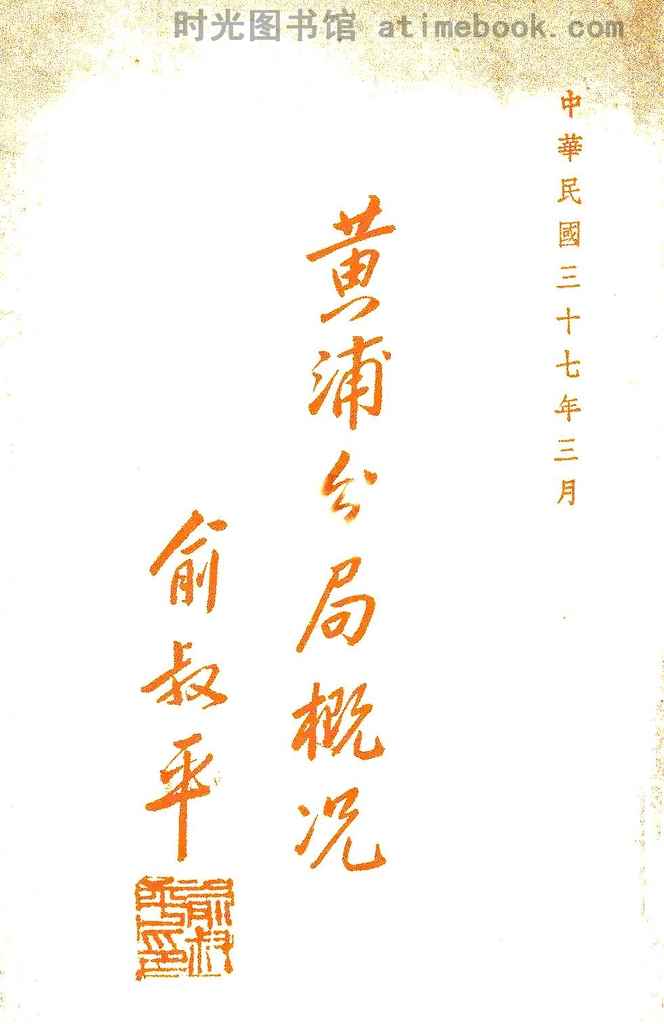 时光图书馆 atimebook.com
中華民國三十七年三月
黄浦分局概况
俞叔平
俞叔平印